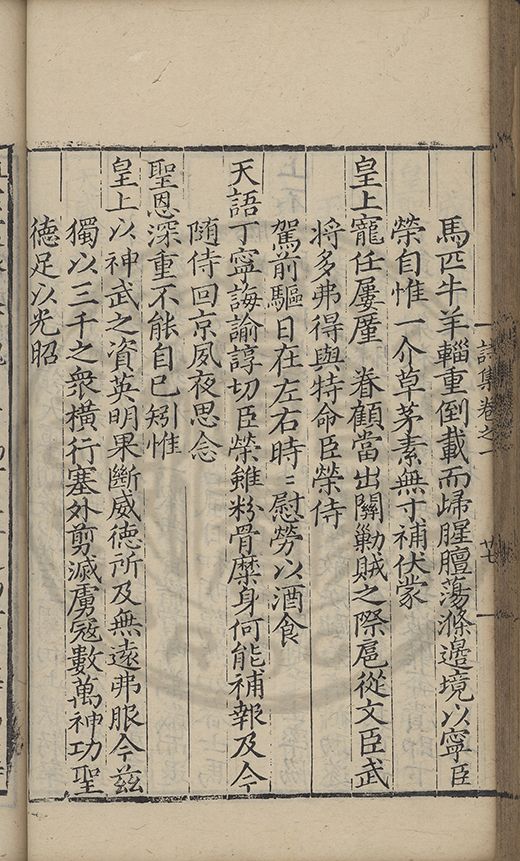 詩集卷之一
廿
馬匹牛羊輜重倒載而歸腥膻蕩滌邊境以寧臣
榮自惟一介草茅素無寸補伏蒙
皇上寵任屢厪 眷顧當出關勦賊之際扈從文臣武
將多弗得與特命臣榮侍
駕前驅日在左右時〻慰勞以酒食
天語丁寧誨諭諄切臣榮雖粉骨糜身何能補報及今
随侍回京夙夜思念
聖恩深重不能自已矧惟
皇上以神武之資英明果斷威德所及無遠弗服今茲
獨以三千之衆橫行塞外剪滅虜寇數萬神功聖
德足以光昭